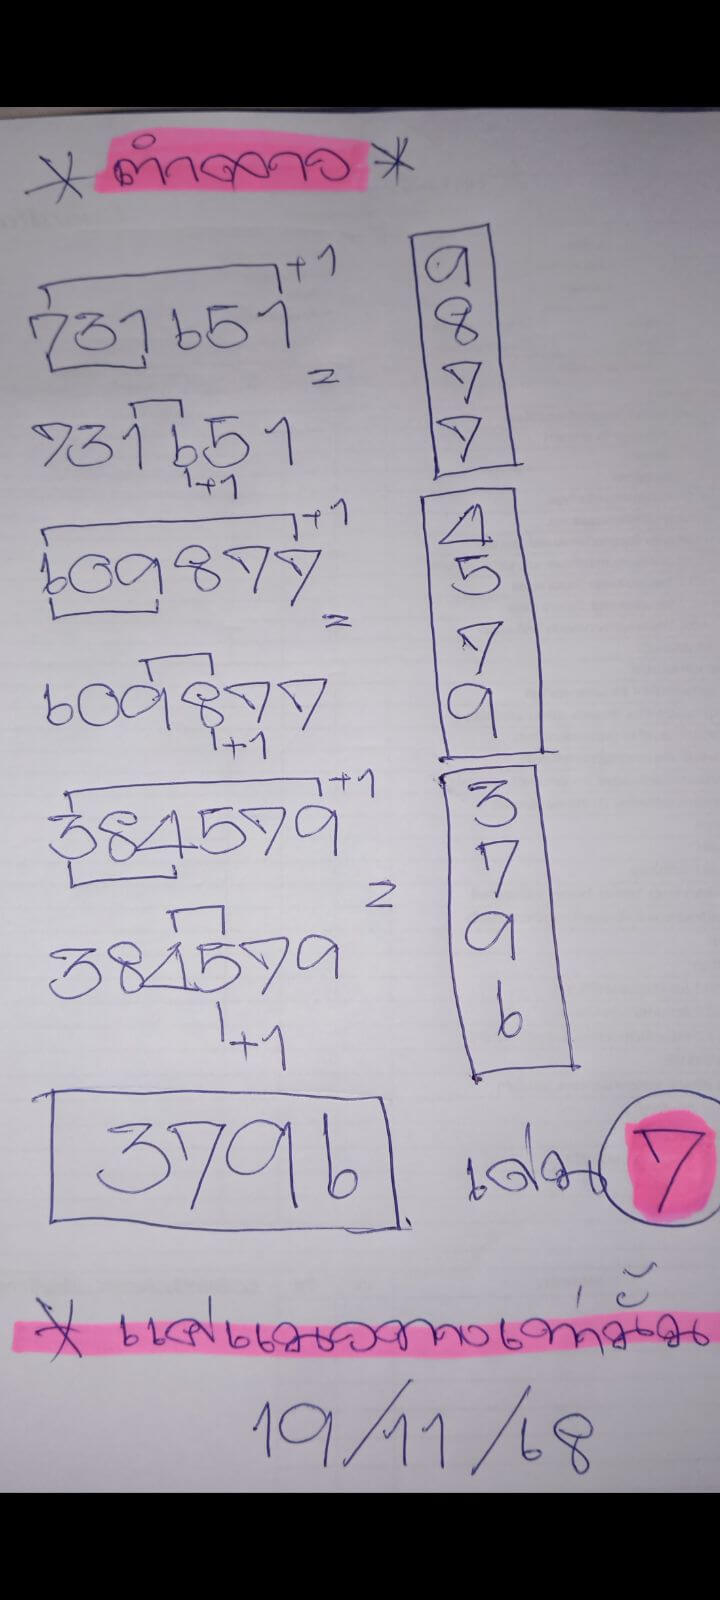 * ตำลาว *
+1
731651
=
9
8
7
7
731651
+1
+1
609877
=
4
5
7
9
609877
+1
+1
384579
=
3
7
9
6
384579
+1
3796
เด่น 7
* แค่แนวทางเท่านั้น
19/11/68